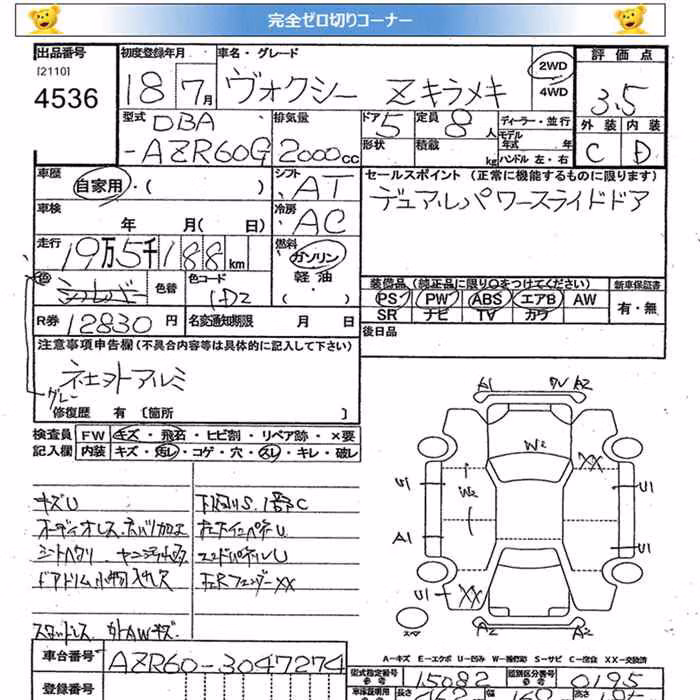 完全ゼロ切りコーナー
出品番号 初度登録年月 車名・グレード 評価点
[2110]
4536 18 7月 ヴォクシー Zキラメキ 2WD 4WD 3.5
型式 排気量 ドア 定員 ディーラー・並行 外装 内装
DBA 5 8人 モデル年式 年
-AZR60G 2000cc 形状 積載 kg ハンドル 左・右 C D
車歴 シフト セールスポイント (正常に機能するものに限ります)
自家用・( ) AT デュアルパワースライドドア
車検 年 月( 日) 冷房 AC
走行 19万5千188km 燃料 ガソリン
軽油・( )
色 シルバー 色替 色コード 1D2 装備品(純正品に限り○をつけてください) 新車保証書
PS PW ABS エアB AW 有・無
SR ナビ TV カワ
R券 12830円 名変通知期限 月 日 後日品
注意事項申告欄(不具合内容等は具体的に記入して下さい)
グレー
修復歴 有 〔箇所 〕
検査員 FW キズ・飛石・ヒビ割・リペア跡・×要
記入欄 内装 キズ・汚レ・コゲ・穴・スレ・キレ・破レ
A1 A2
W2 XX
U1 W2 U1
A1 U1
U1 XX
スペア A2 A2
キズU 下廻りS.1部C
オーディオレス
シートヘタリ
スタットレス 外AWキズ
車台番号 AZR60-3047274
A-キズ E-エクボ U-凹み W-補修跡 S-サビ C-腐食 XX-交換済
型式指定番号 15082 類別区分番号 0195
登録番号 長さ 高さ